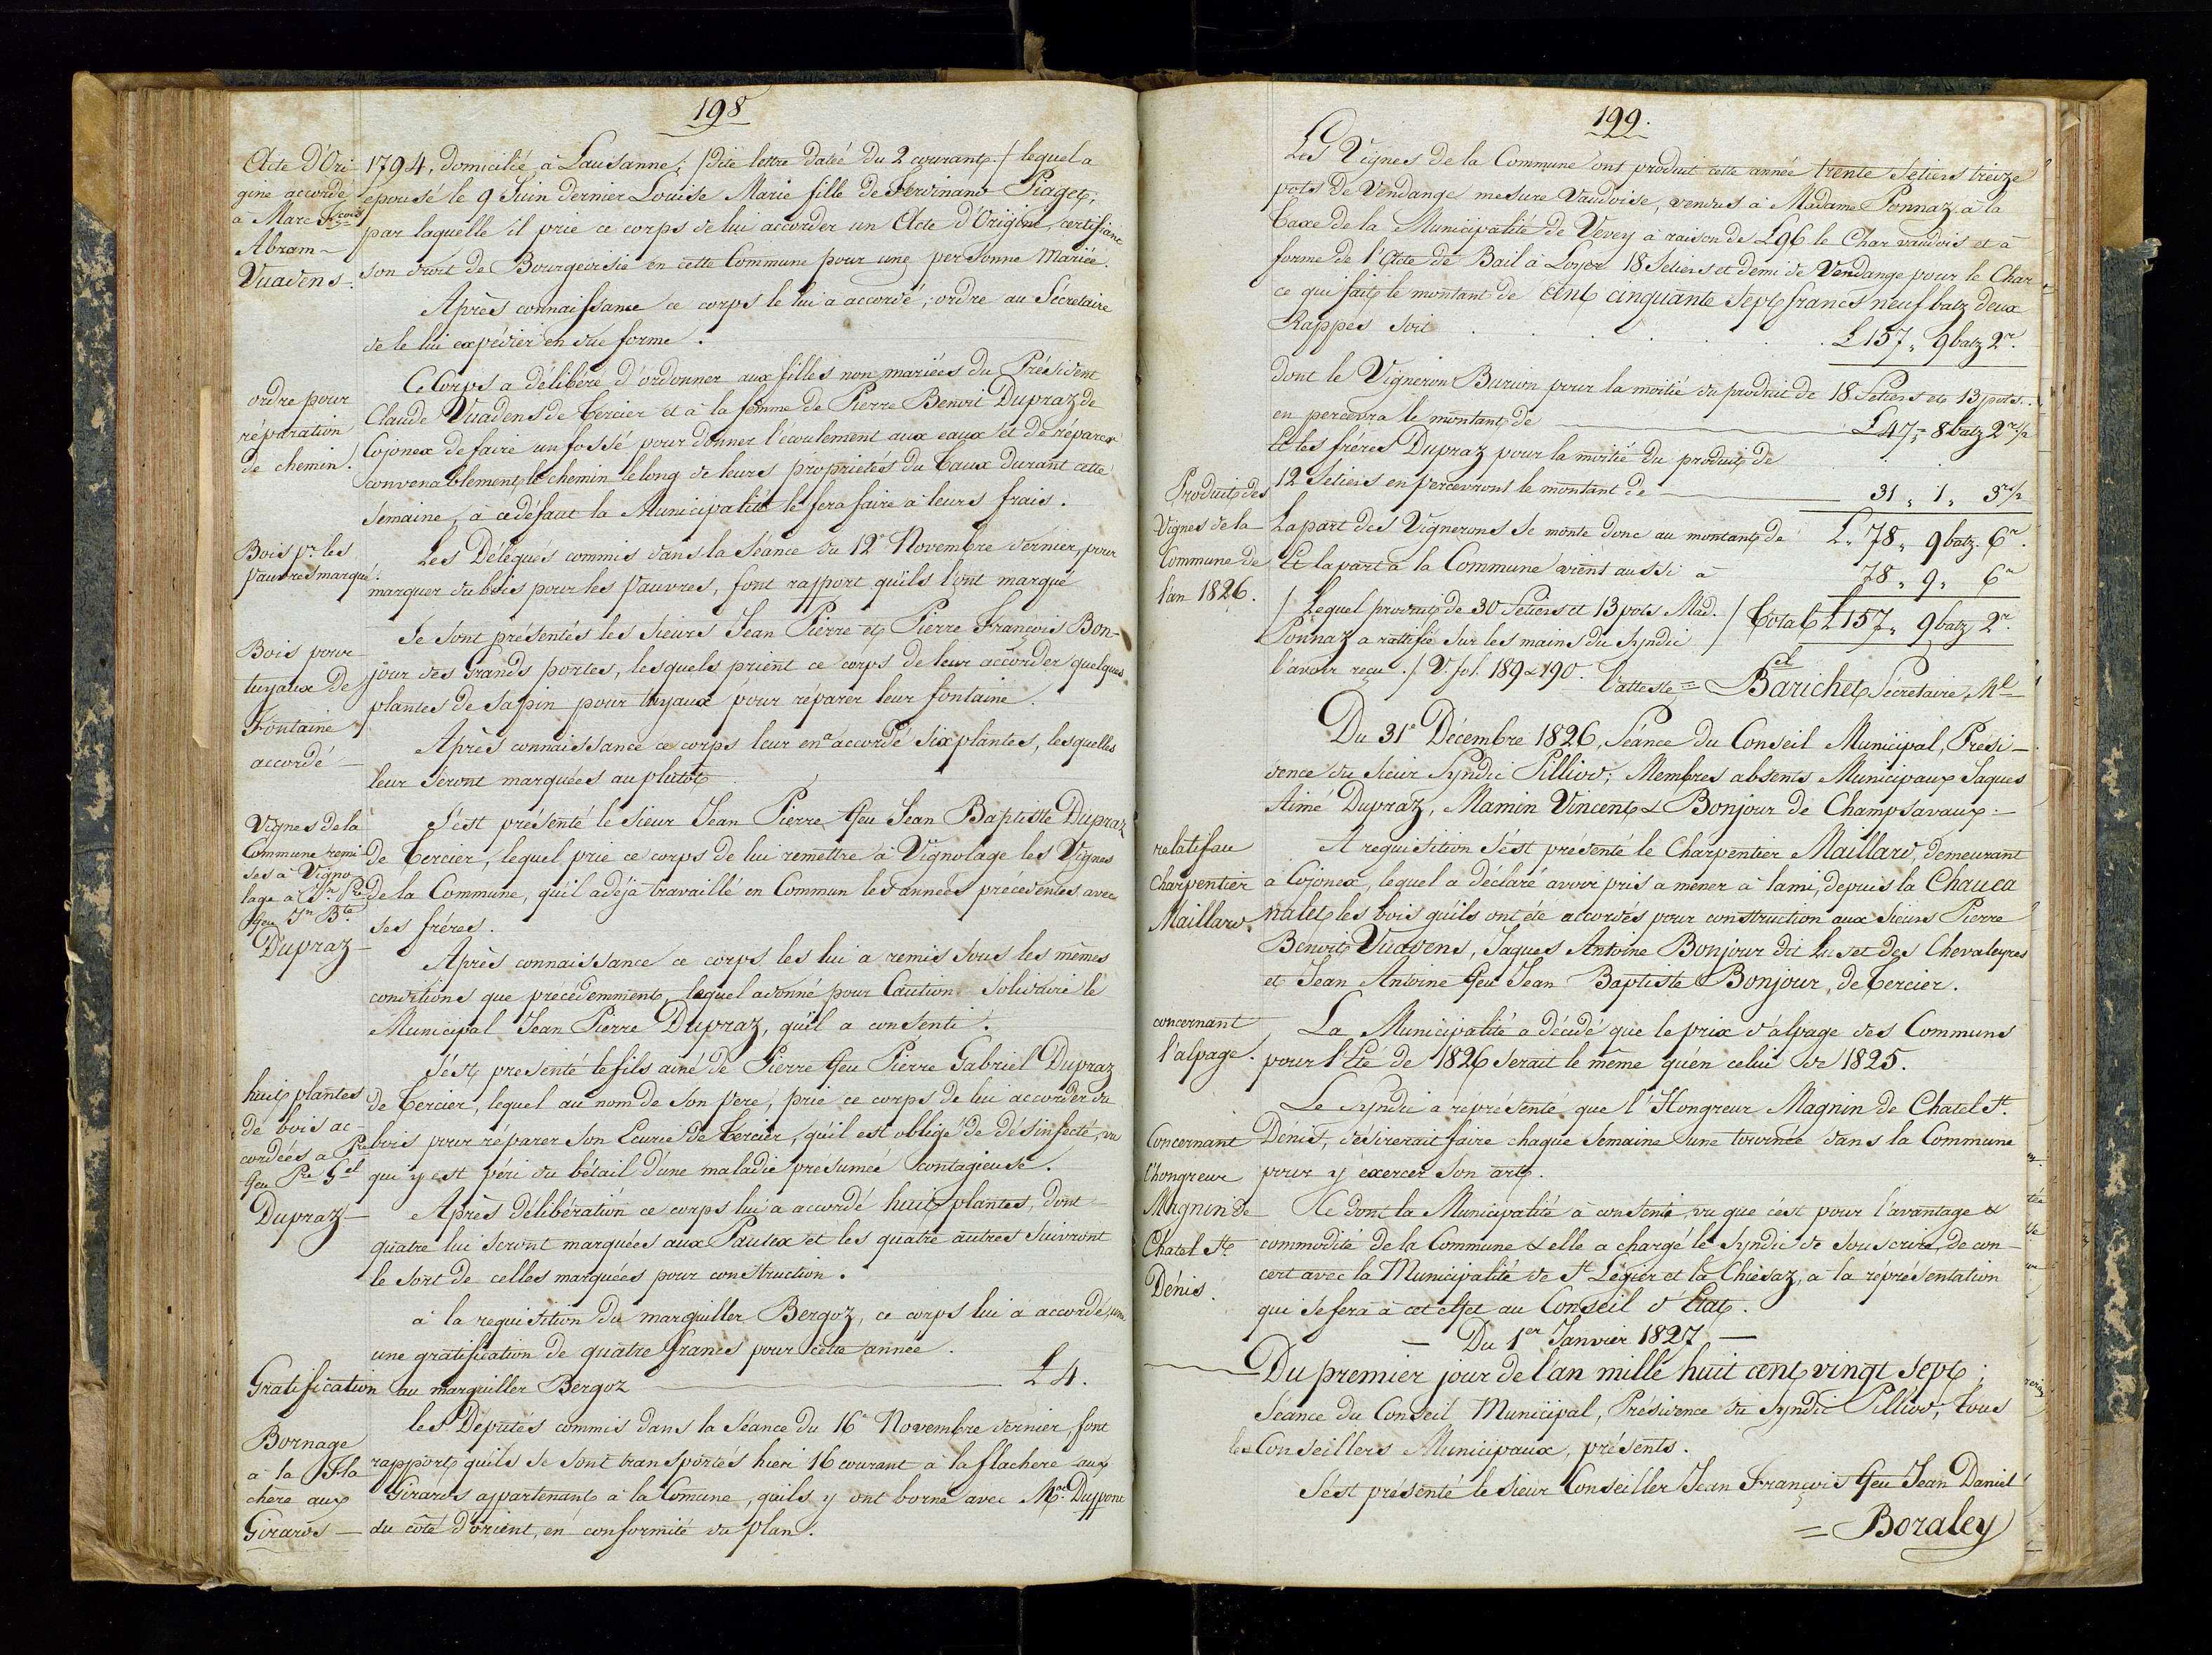 198
Acte d'Ori-
gine accordé
à Marc Fçois
Abram
Vuadens.
1794, domicilié à Lausanne; /dite lettre datée du 2 courant./ lequel a
épousé le 9 Juin dernier Louise Marie fille de Ferdinand Piaget,
par laquelle il prie ce corps de lui accorder un Acte d'Origine, certifiant
son droit de Bourgeoisie en cette Commune pour une personne Mariée.
Après connaissance ce corps le lui a accordé; ordre au Sécretaire
de le lui expédier en düe forme.
ordre pour
réparation
de chemin.
Ce Corps a délibéré d'ordonner aux filles non mariées du Président
Claude Vuadens de Tercier et à la femme de Pierre Benoit Dupraz de
Cojonex de faire un fossé pour donner l'écoulement aux eaux et de réparer
convenablement le chemin le long de leurs propriétés du Taux durant cette
semaine, à ce défaut la Municipalité le fera faire à leurs frais.
Bois pr. les
pauvres marqué.
Les Délégués commis dans la Séance du 12e Novembre dernier, pour
marquer du bois pour les Pauvres, font rapport qu'ils l'ont marqué
Bois pour
tuyaux de
Fontaine
accordé
Se sont présentés les sieurs Jean Pierre et Pierre François Bon-
jour des Grands portes, lesquels prient ce corps de leur accorder quelques
plantes de sapin pour tuyaux pour réparer leur fontaine.
Après connaissance ce corps leur en a accordé six plantes, lesquelles
leur seront marquées au plutôt
Vignes de la
Commune remi-
ses à Vigno-
lage à Jn. Pre
feu Jn Bte.
Dupraz
S'est présenté le sieur Jean Pierre feu Jean Baptiste Dupraz
de Tercier, lequel prie ce corps de lui remettre à Vignolage les Vignes
de la Commune, qu'il a déjà travaillé en Commun les années précedentes avec
ses fréres.
Après connaissance ce corps les lui a remis sous les mêmes
conditions que précédemment, lequel a donné pour Caution solidaire le
Municipal Jean Pierre Dupraz, qu'il a consenti.
huit plantes
de bois ac-
cordées à Pre
feu Pre Gel
Dupraz
S'est presenté le fils ainé de Pierre feu Pierre Gabriel Dupraz
de Tercier, lequel au nom de son Pere, prie ce corps de lui accorder du
bois pour réparer son Ecurie de Tercier, qu'il est obligé de désinfecté, vu
qui y est péri du bétail d'une maladie présumée contagieuse.
Après délibération ce corps lui a accordé huit plantes, dont
quatre lui seront marquées aux Pautex et les quatre autres suivront
le sort de celles marquées pour construction.
à la requisition du marguiller Bergoz, ce corps lui a accordé, une
une gratification de quatre francs pour cette année.
Gratification au marguiller Bergoz L 4.
Bornage
à la Fla-
chere aux
Girards
les Députés commis dans la Séance du 16e Novembre dernier, font
rapport qu'ils se sont transportés hier 16 courant à la flachere aux
Girards appartenant à la Comune, qu'ils y ont borné avec Mr. Duppont
du coté d'orient, en conformité du plan.
199.
Les Vignes de la Commune ont produit cette année trente Setiers treize
pots de Vendange mesure Vaudoise, vendus à Madame Ponnaz à la
Taxe de la Municipalité de Vevey à raison de L 96 le Char vaudois et à
forme de l'Acte de Bail à Loyer 18 Setiers et demi de Vendange pour le Char
ce qui fait le montant de cent cinquante sept francs neuf batz deux
Rappes soit L 157 „ 9 batz 2r.
dont le Vigneron Burion pour la moitié du produit de 18 Setiers et 13 pots.
en percevra le montant de L 47 „ 8 batz 2r½
Et les fréres Dupraz pour la moitié du produit de
12 Setiers en percevront le montant de 31 „ 1 „ 3r½
Produit des
Vignes de la
Commune de
l'an 1826.
La part des Vignerons se monte donc au montant de L. 78 „ 9 batz. 6r.
Et la part à la Commune vient aussi à 78 „ 9 „ 6r
/ Lequel produit de 30 Setiers et 13 pots Mad. / Total L 157 „ 9 batz 2r.
Ponnaz a rattifié sur les mains du Syndic /
l'avoir reçu ./ V. fol. 189 & 190. l'atteste = Barichet Sécretaire Mal
Du 31e Décembre 1826, Séance du Conseil Municipal, Prési-
dence du sieur Syndic Pilliod; Membres absents Municipaux Jaques
Aimé Dupraz, Mamin Vincent & Bonjour de Champsavaux.
relatif au
Charpentier
Maillard.
A requisition s'est présenté le Charpentier Maillard, demeurant
à Cojonex, lequel a déclaré avoir pris à mener à lami, depuis la Chauca
nalet les bois qu'ils ont été accordés pour construction aux sieurs Pierre
Benoit Vuadens, Jaques Antoine Bonjour dit Luset des Chevaleyres
et Jean Antoine feu Jean Baptiste Bonjour, de Tercier.
concernant
l'alpage.
La Municipalité a décidé que le prix d'alpage des Communs
pour l'Eté de 1826 serait le même qu'en celui de 1825.
Concernant
l'hongreur
Magnin de
Chatel St.
Dénis.
Le Syndic a représenté que l'Hongreur Magnin de Chatel St.
Dénis, désirerait faire chaque semaine une tournée dans la Commune
pour y exercer son art.
Ce dont la Municipalité à consenti, vu que c'est pour l'avantage &
commodité de la Commune & elle a chargé le Syndic de souscrire, de con-
cert avec la Municipalité de St. Légier et la Chiésaz, à la réprésentation
qui se fera à cet effet au Conseil d'Etat.
— Du 1er Janvier 1827 —
Du premier jour de l'an mille huit cent vingt sept;
Séance du Conseil Municipal, Présidence du Syndic Pilliod, tous
les Conseillers Municipaux, présents.
S'est présenté le sieur Conseiller Jean François feu Jean Daniel
= Boraley